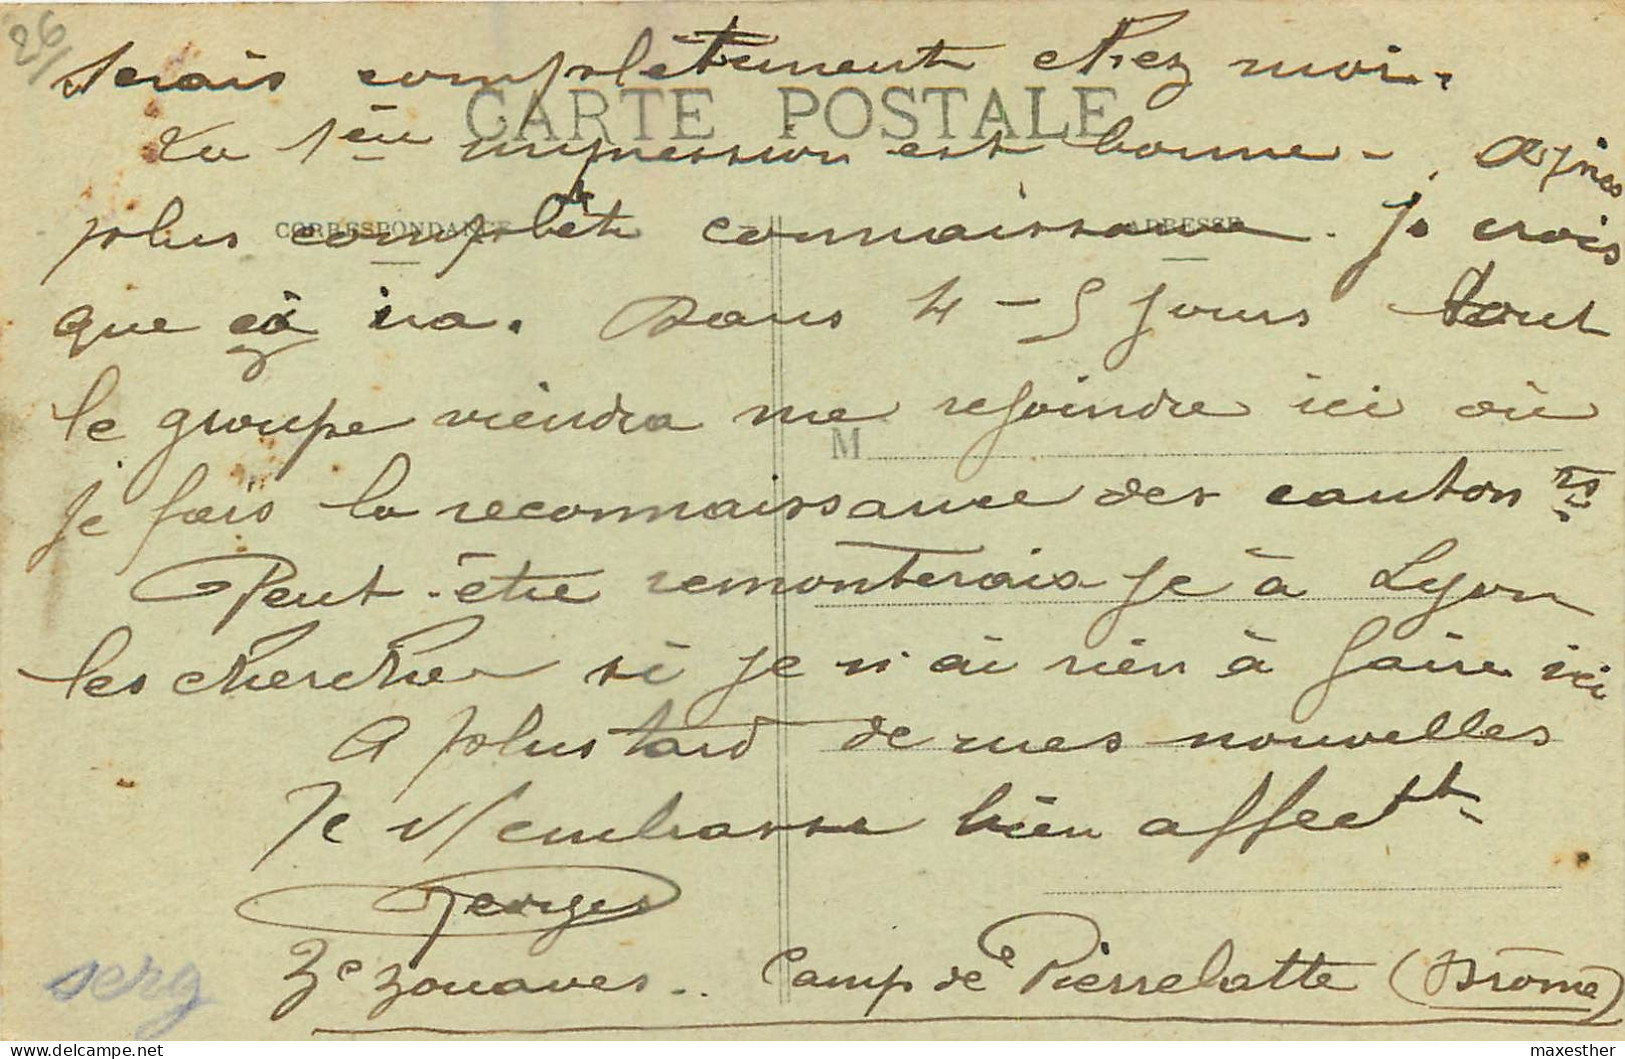 26/
serais complètement chez moi.
CARTE POSTALE
La 1ère impression est bonne - Après
CORRESPONDANCE ADRESSE
plus complète connaissance. Je crois
que ça ira. Dans 4 - 5 jours tout
le groupe viendra me rejoindre ici où
M
je fais la reconnaissance des cantonts
Peut-être remonterais je à Lyon
les chercher si je n'ai rien à faire ici
A plus tard de mes nouvelles
Je v/ embrasse bien affectt
Georges
3e zouaves.. Camp de Pierrelatte (Drôme)
serg
delcampe.net
maxesther